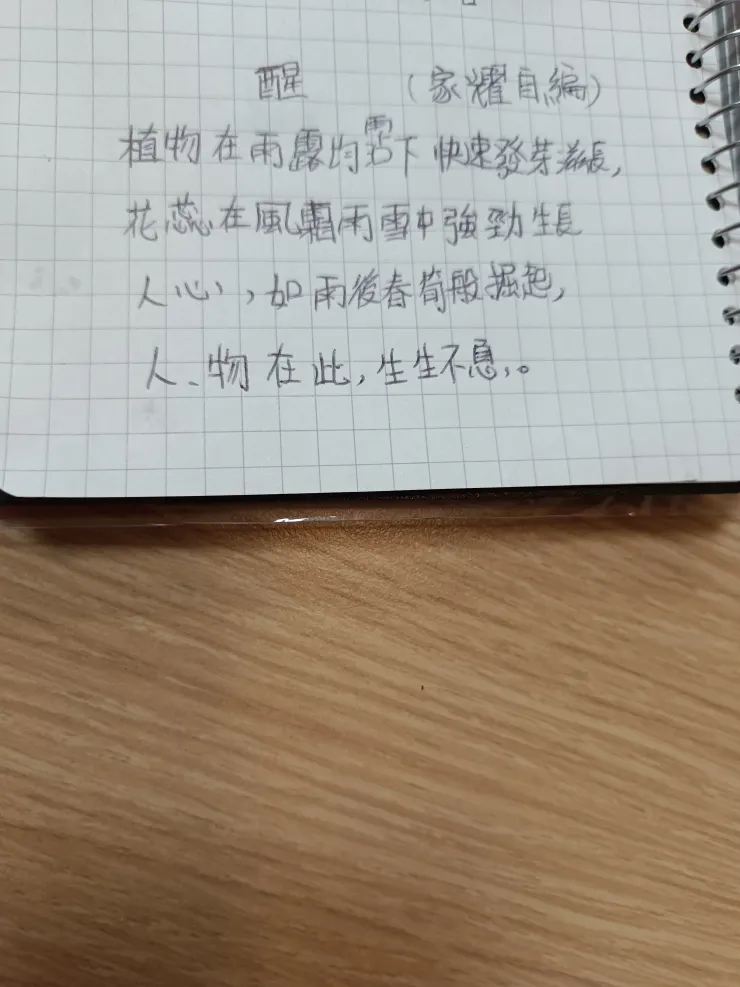 醒 （家耀自編）
植物在雨露均霑下快速發芽滋長，
花蕊在風霜雨雪中強勁生長
人心，如雨後春筍般掘起，
人、物在此，生生不息，。